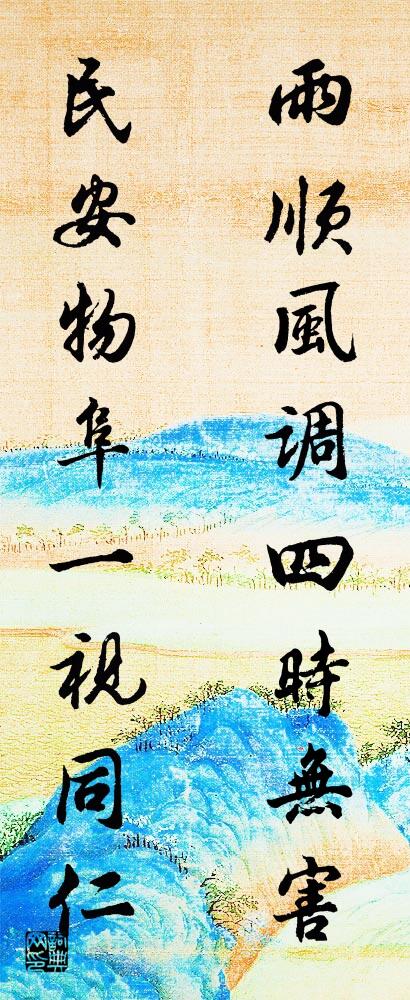 雨順風調四時無害
民安物阜一視同仁